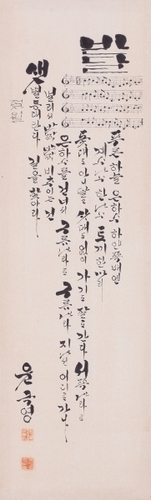 반달
푸른하늘 은하수 하얀쪽배엔
계수나무 한나무 토끼 한마리
돛대도 아니달고 삿대도 없이 가기도 잘도간다 서쪽나라로
은하수를 건너서 구름나라로 구름나라 지나선 어디로 가나
멀리서 반짝반짝 비치이는건
샛별등대란다 길을 찾아라
윤극영